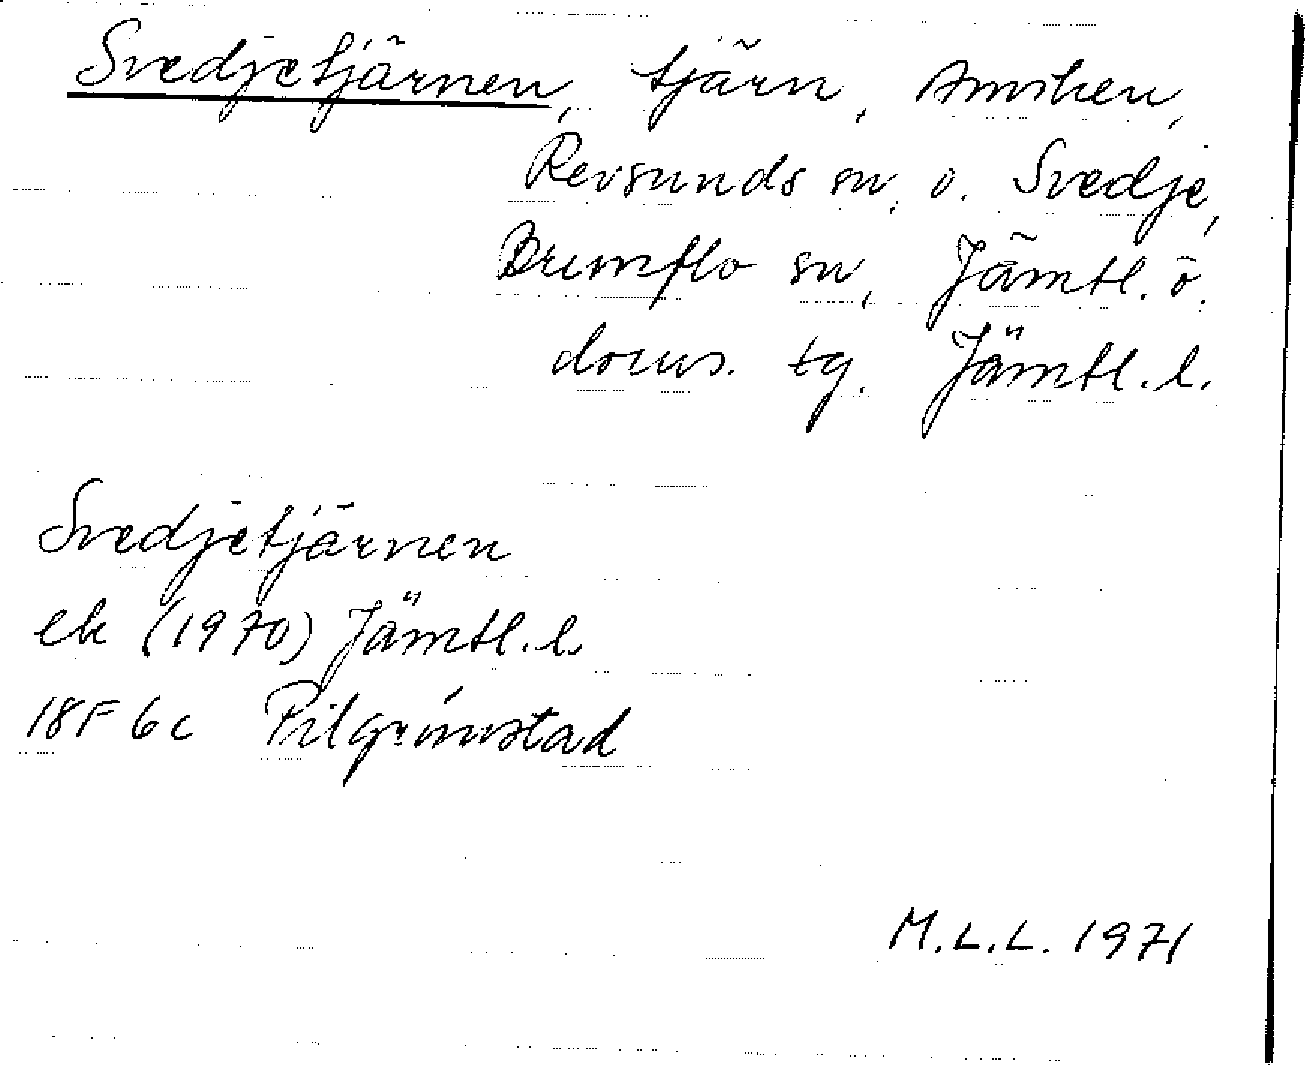 Svedjetjärnen, tjärn, Ansvken,
Revsunds sn, o. Svedje,
Brunflo sn, Jämtl. ö.
doms. tg. Jämtl. l.
Svedjetjärnen
ek (1970) Jämtl. l.
18F 6c Pilgrimstad
M.L.L. 1971